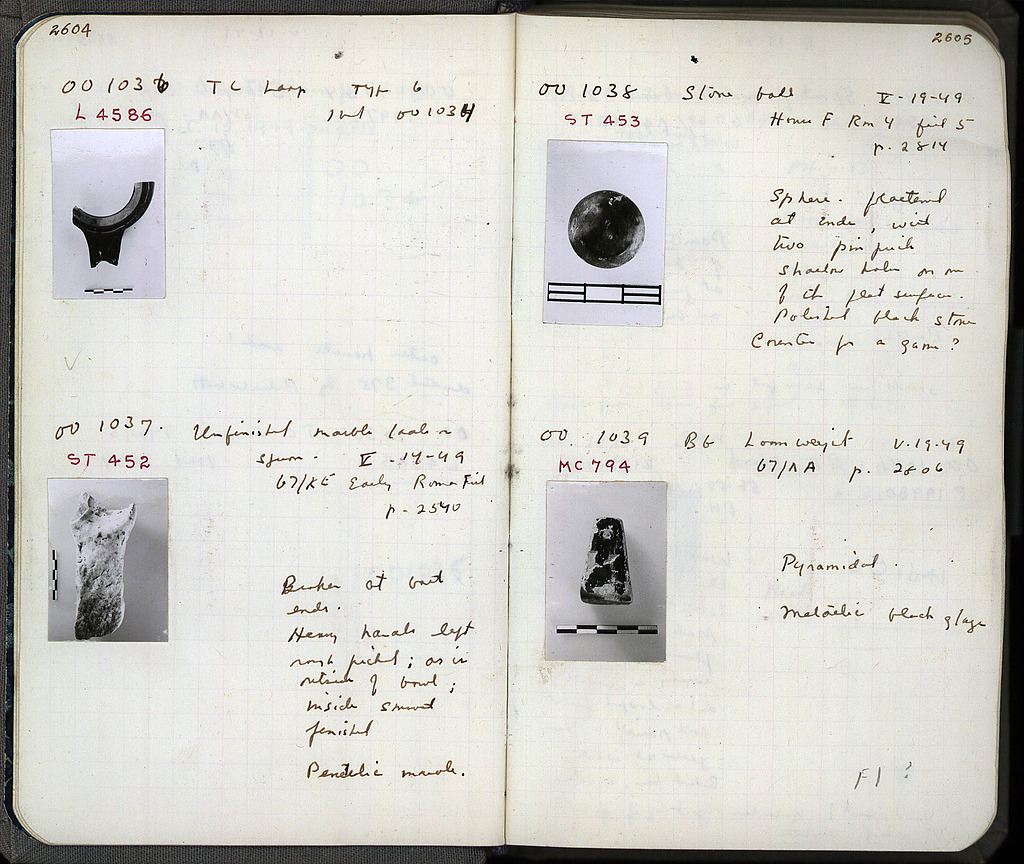 2604
OO 1036 TC Lamp Type 6
OO 1034
L 4586
OO 1037. Unfinished marble ladle or
spoon. V-14-49
ST 452
67/ΚΕ Early Roman Fill
p. 2540
Broken at both
ends.
Heavy handle left
rough picked; as is
outside of bowl;
inside smooth
finished
Pentelic marble.
2605
OO 1038 Stone ball V-19-49
ST 453
House F Rm 4 fill 5
p. 2814
Sphere. flattened
at ends, with
two pin prick
shallow holes on one
of the flat surfaces.
Polished black stone
Counter for a game?
OO 1039 BG Loomweight V-19-49
MC 794
67/ΛΑ p. 2806
Pyramidal.
Metallic black glaze
F1?